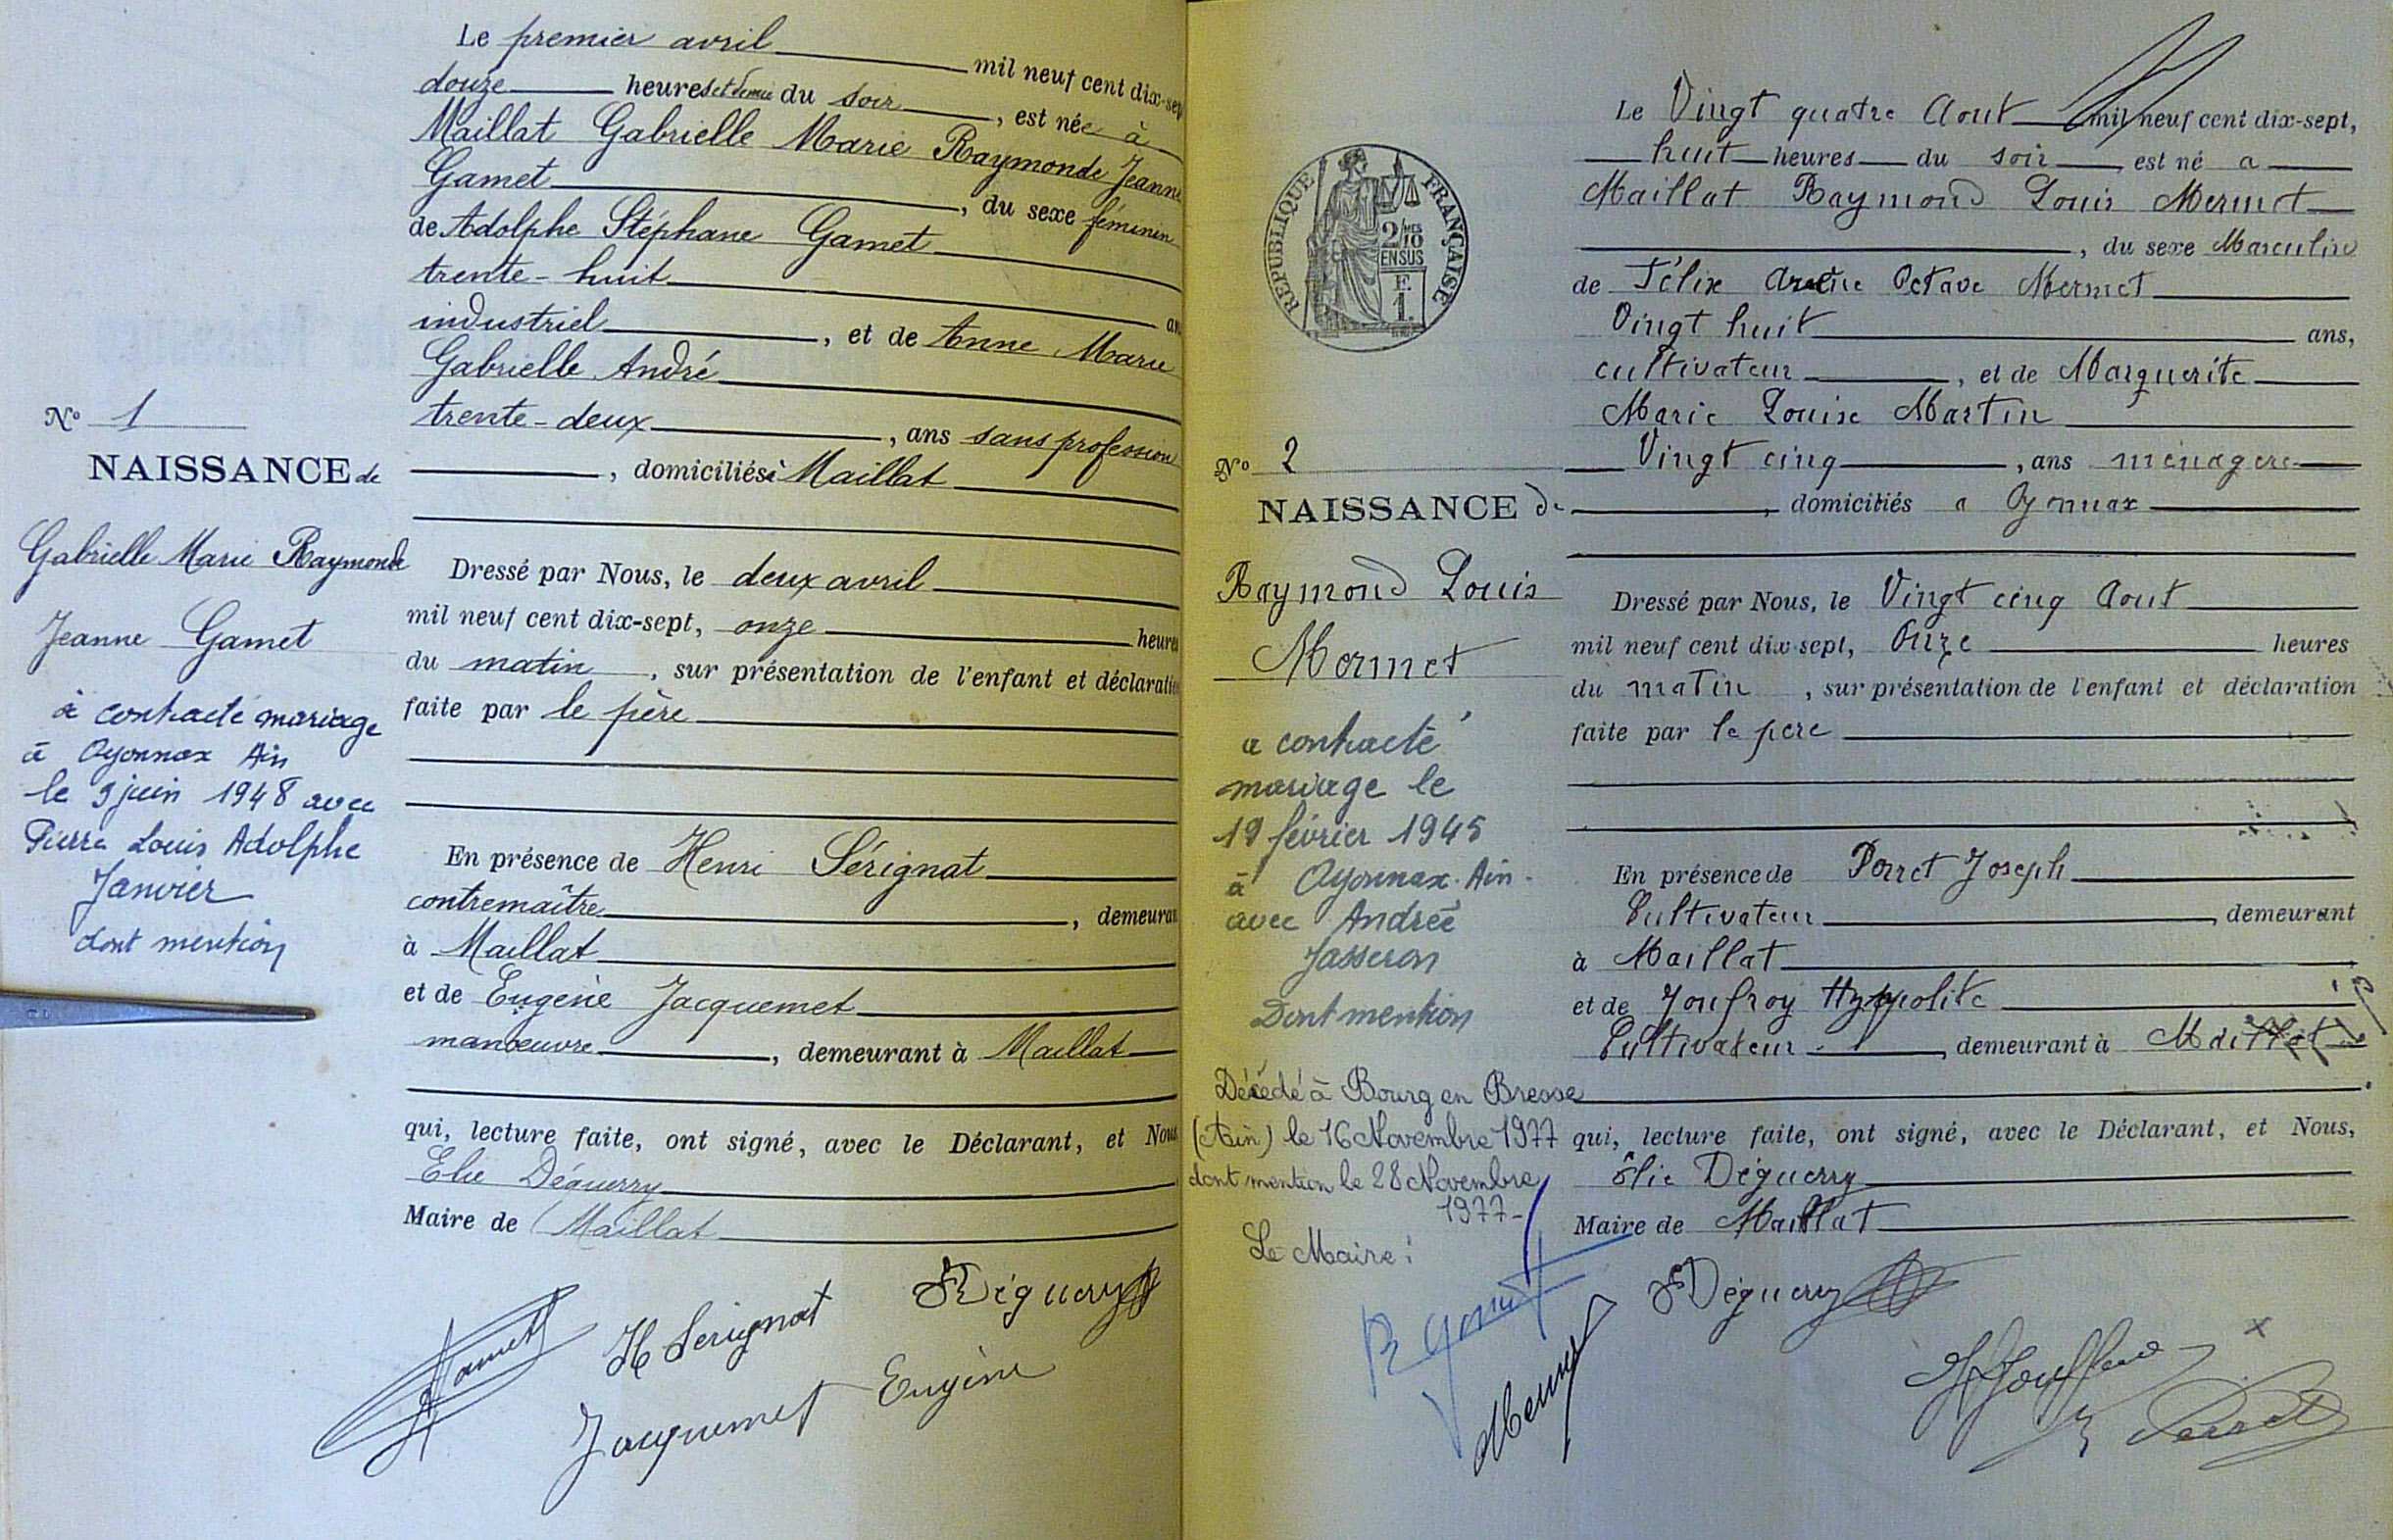 Le premier avril mil neuf cent dix-sept
douze heures et demie du soir, est née à
Maillat Gabrielle Marie Raymonde Jeanne
Gamet, du sexe féminin
de Adolphe Stéphane Gamet
trente-huit an
industriel, et de Anne Marie
Gabrielle André
trente-deux, ans sans profession
, domiciliés à Maillat
N° 1
NAISSANCE de
Gabrielle Marie Raymonde
Jeanne Gamet
à contracté mariage
à Oyonnax Ain
le 9 juin 1948 avec
Pierre Louis Adolphe
Janvier
dont mention
Dressé par Nous, le deux avril
mil neuf cent dix-sept, onze heures
du matin, sur présentation de l'enfant et déclaration
faite par le père
En présence de Henri Sérignat
contremaître, demeurant
à Maillat
et de Eugène Jacquemet
manœuvre, demeurant à Maillat
qui, lecture faite, ont signé, avec le Déclarant, et Nous
Elie Déguerry
Maire de Maillat
Gamet
H Serignat
Déguerry
Jacquemet Eugène
REPUBLIQUE FRANÇAISE
2/10
EN SUS
F.
1.
Le Vingt quatre Aout mil neuf cent dix-sept,
huit heures du soir est né a
Maillat Raymond Louis Mermet
, du sexe Masculin
de Félix Octave Mermet
Vingt huit ans,
cultivateur, et de Marguerite
Marie Louise Martin
Vingt cinq, ans ménagère
, domiciliés a Oyonnax
N° 2
NAISSANCE de
Raymond Louis
Mermet
a contracté
mariage le
19 février 1945
à Oyonnax. Ain.
avec Andrée
Jasseron
Dont mention
Décédé à Bourg en Bresse
(Ain) le 16 Novembre 1977
dont mention le 28 Novembre
1977-
Le Maire:
Dressé par Nous, le Vingt cinq Aout
mil neuf cent dix-sept, Onze heures
du matin, sur présentation de l'enfant et déclaration
faite par le père
En présence de Perret Joseph
Cultivateur, demeurant
à Maillat
et de Joufroy Hyppolite
Cultivateur, demeurant à Maillat
qui, lecture faite, ont signé, avec le Déclarant, et Nous,
Élie Déguerry
Maire de Maillat
Déguerry
Mermet
Perret